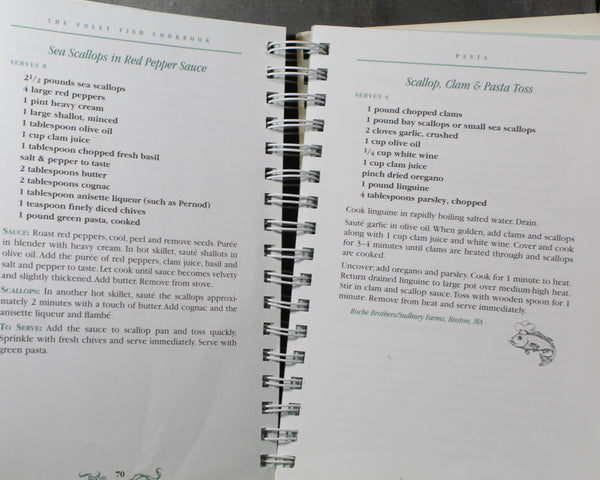 THE FOLEY FISH COOKBOOK
Sea Scallops in Red Pepper Sauce
SERVES 8
2 1/2 pounds sea scallops
4 large red peppers
1 pint heavy cream
1 large shallot, minced
1 tablespoon olive oil
1 cup clam juice
1 tablespoon chopped fresh basil
salt & pepper to taste
2 tablespoons butter
2 tablespoons cognac
1 tablespoon anisette liqueur (such as Pernod)
1 teaspoon finely diced chives
1 pound green pasta, cooked
SAUCE: Roast red peppers, cool, peel and remove seeds. Purée
in blender with heavy cream. In hot skillet, sauté shallots in
olive oil. Add the purée of red peppers, clam juice, basil and
salt and pepper to taste. Let cook until sauce becomes velvety
and slightly thickened. Add butter. Remove from stove.
SCALLOPS: In another hot skillet, sauté the scallops approxi-
mately 2 minutes with a touch of butter. Add cognac and the
anisette liqueur and flambé.
TO SERVE: Add the sauce to scallop pan and toss quickly.
Sprinkle with fresh chives and serve immediately. Serve with
green pasta.
70
PASTA
Scallop, Clam & Pasta Toss
SERVES 4
1 pound chopped clams
1 pound bay scallops or small sea scallops
2 cloves garlic, crushed
1 cup olive oil
1/4 cup white wine
1 cup clam juice
pinch dried oregano
1 pound linguine
4 tablespoons parsley, chopped
Cook linguine in rapidly boiling salted water. Drain.
Sauté garlic in olive oil. When golden, add clams and scallops
along with 1 cup clam juice and white wine. Cover and cook
for 3-4 minutes until clams are heated through and scallops
are cooked.
Uncover, add oregano and parsley. Cook for 1 minute to heat.
Return drained linguine to large pot over medium-high heat.
Stir in clam and scallop sauce. Toss with wooden spoon for 1
minute. Remove from heat and serve immediately.
Roche Brothers/Sudbury Farms, Boston, MA